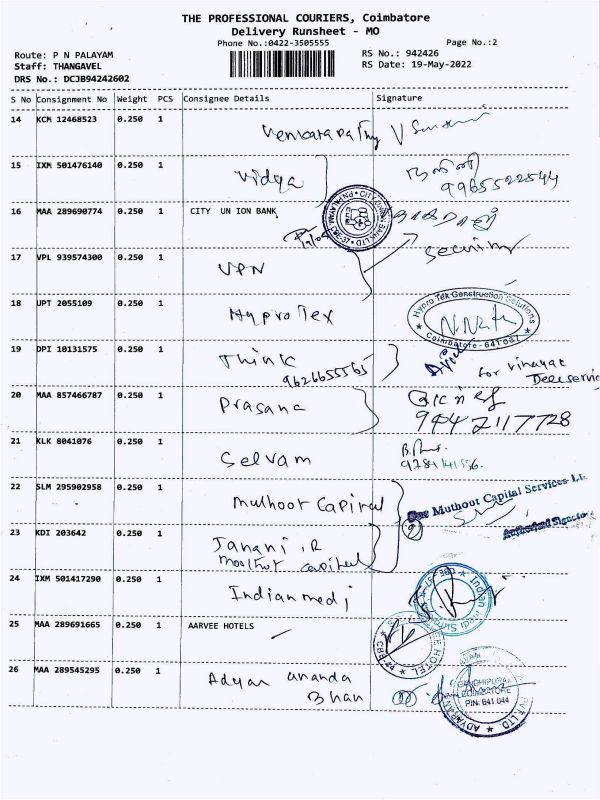 THE PROFESSIONAL COURIERS, Coimbatore
Delivery Runsheet - MO
Phone No.:0422-3505555
Page No.:2
Route: P N PALAYAM
Staff: THANGAVEL
DRS No.: DCJB94242602
RS No.: 942426
RS Date: 19-May-2022
S No Consignment No Weight PCS Consignee Details Signature
14 KCM 12468523 0.250 1
15 IXM 501476140 0.250 1 Vidya
9965522544
16 MAA 289690774 0.250 1 CITY UN ION BANK
security
17 VPL 939574300 0.250 1 VPN
18 UPT 2055109 0.250 1 HyproTex
Hypro Tek Construction Solutions
Coimbatore - 641 037
19 DPI 10131575 0.250 1 Think
9626655565
for vinayac
20 MAA 857466787 0.250 1 Prasana
9047 2117728
21 KLK 8041076 0.250 1 Selvam
22 SLM 295902958 0.250 1 Muthoot Capital
Muthoot Capital Services
Authorised Signatory
23 KDI 203642 0.250 1 Janani .R
moothut capital
24 IXM 501417290 0.250 1 Indian medi
25 MAA 289691665 0.250 1 AARVEE HOTELS
26 MAA 289545295 0.250 1 Adyar ananda
Bhan
GANDHIPURAM
COIMBATORE
PIN: 641 044